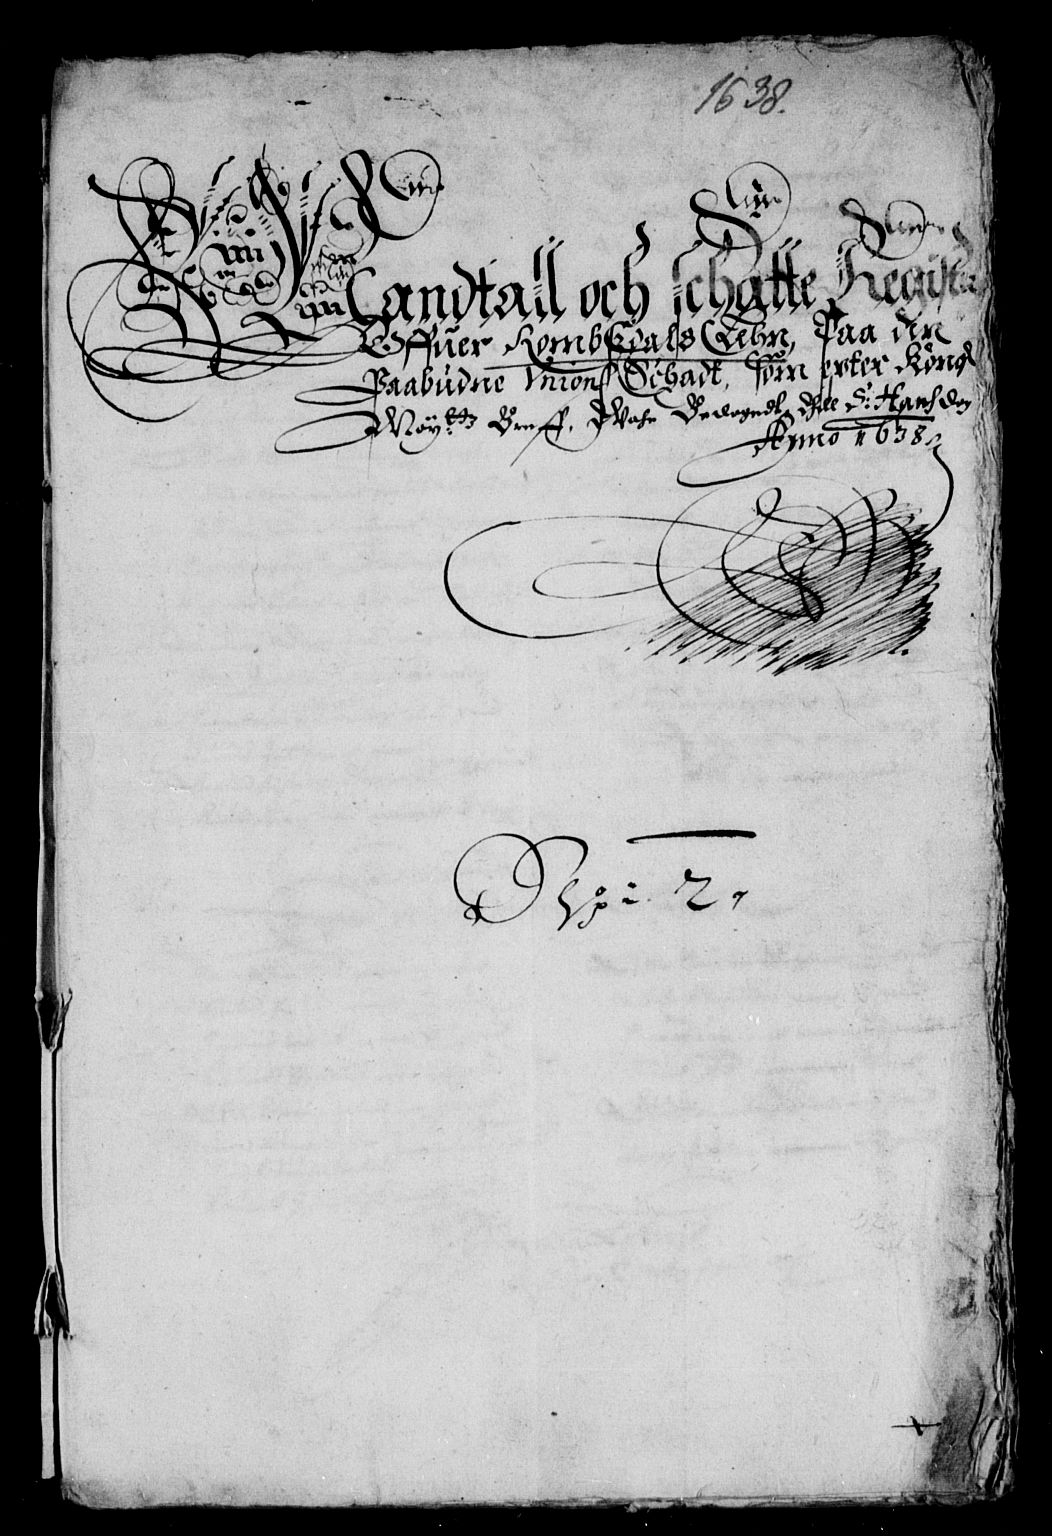 1638.
Mandtall och schatte Register
Offuer Rombsdals Lehn, Paa den
Paabudne Unions Schadt, som epter Kong:
May:tts Breff, Vaar Bedagedt till S: Hans dag
Anno 1638
2